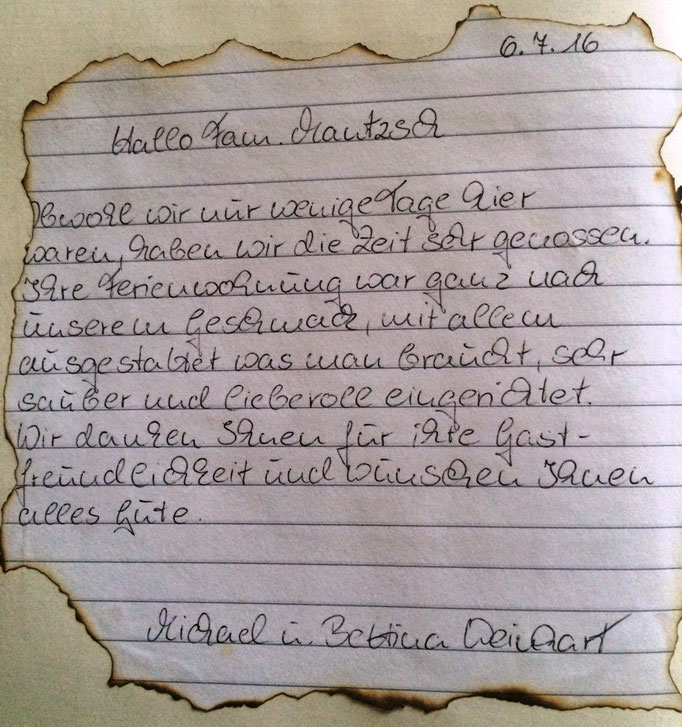 6.7.16
Hallo Fam. Krautzsch
Obwohl wir nur wenige Tage hier
waren, haben wir die Zeit sehr genossen.
Ihre Ferienwohnung war ganz nach
unserem Geschmack, mit allem
ausgestattet was man braucht, sehr
sauber und liebevoll eingerichtet.
Wir danken Ihnen für ihre Gast-
freundlichkeit und wünschen Ihnen
alles Gute.
Michael u. Bettina